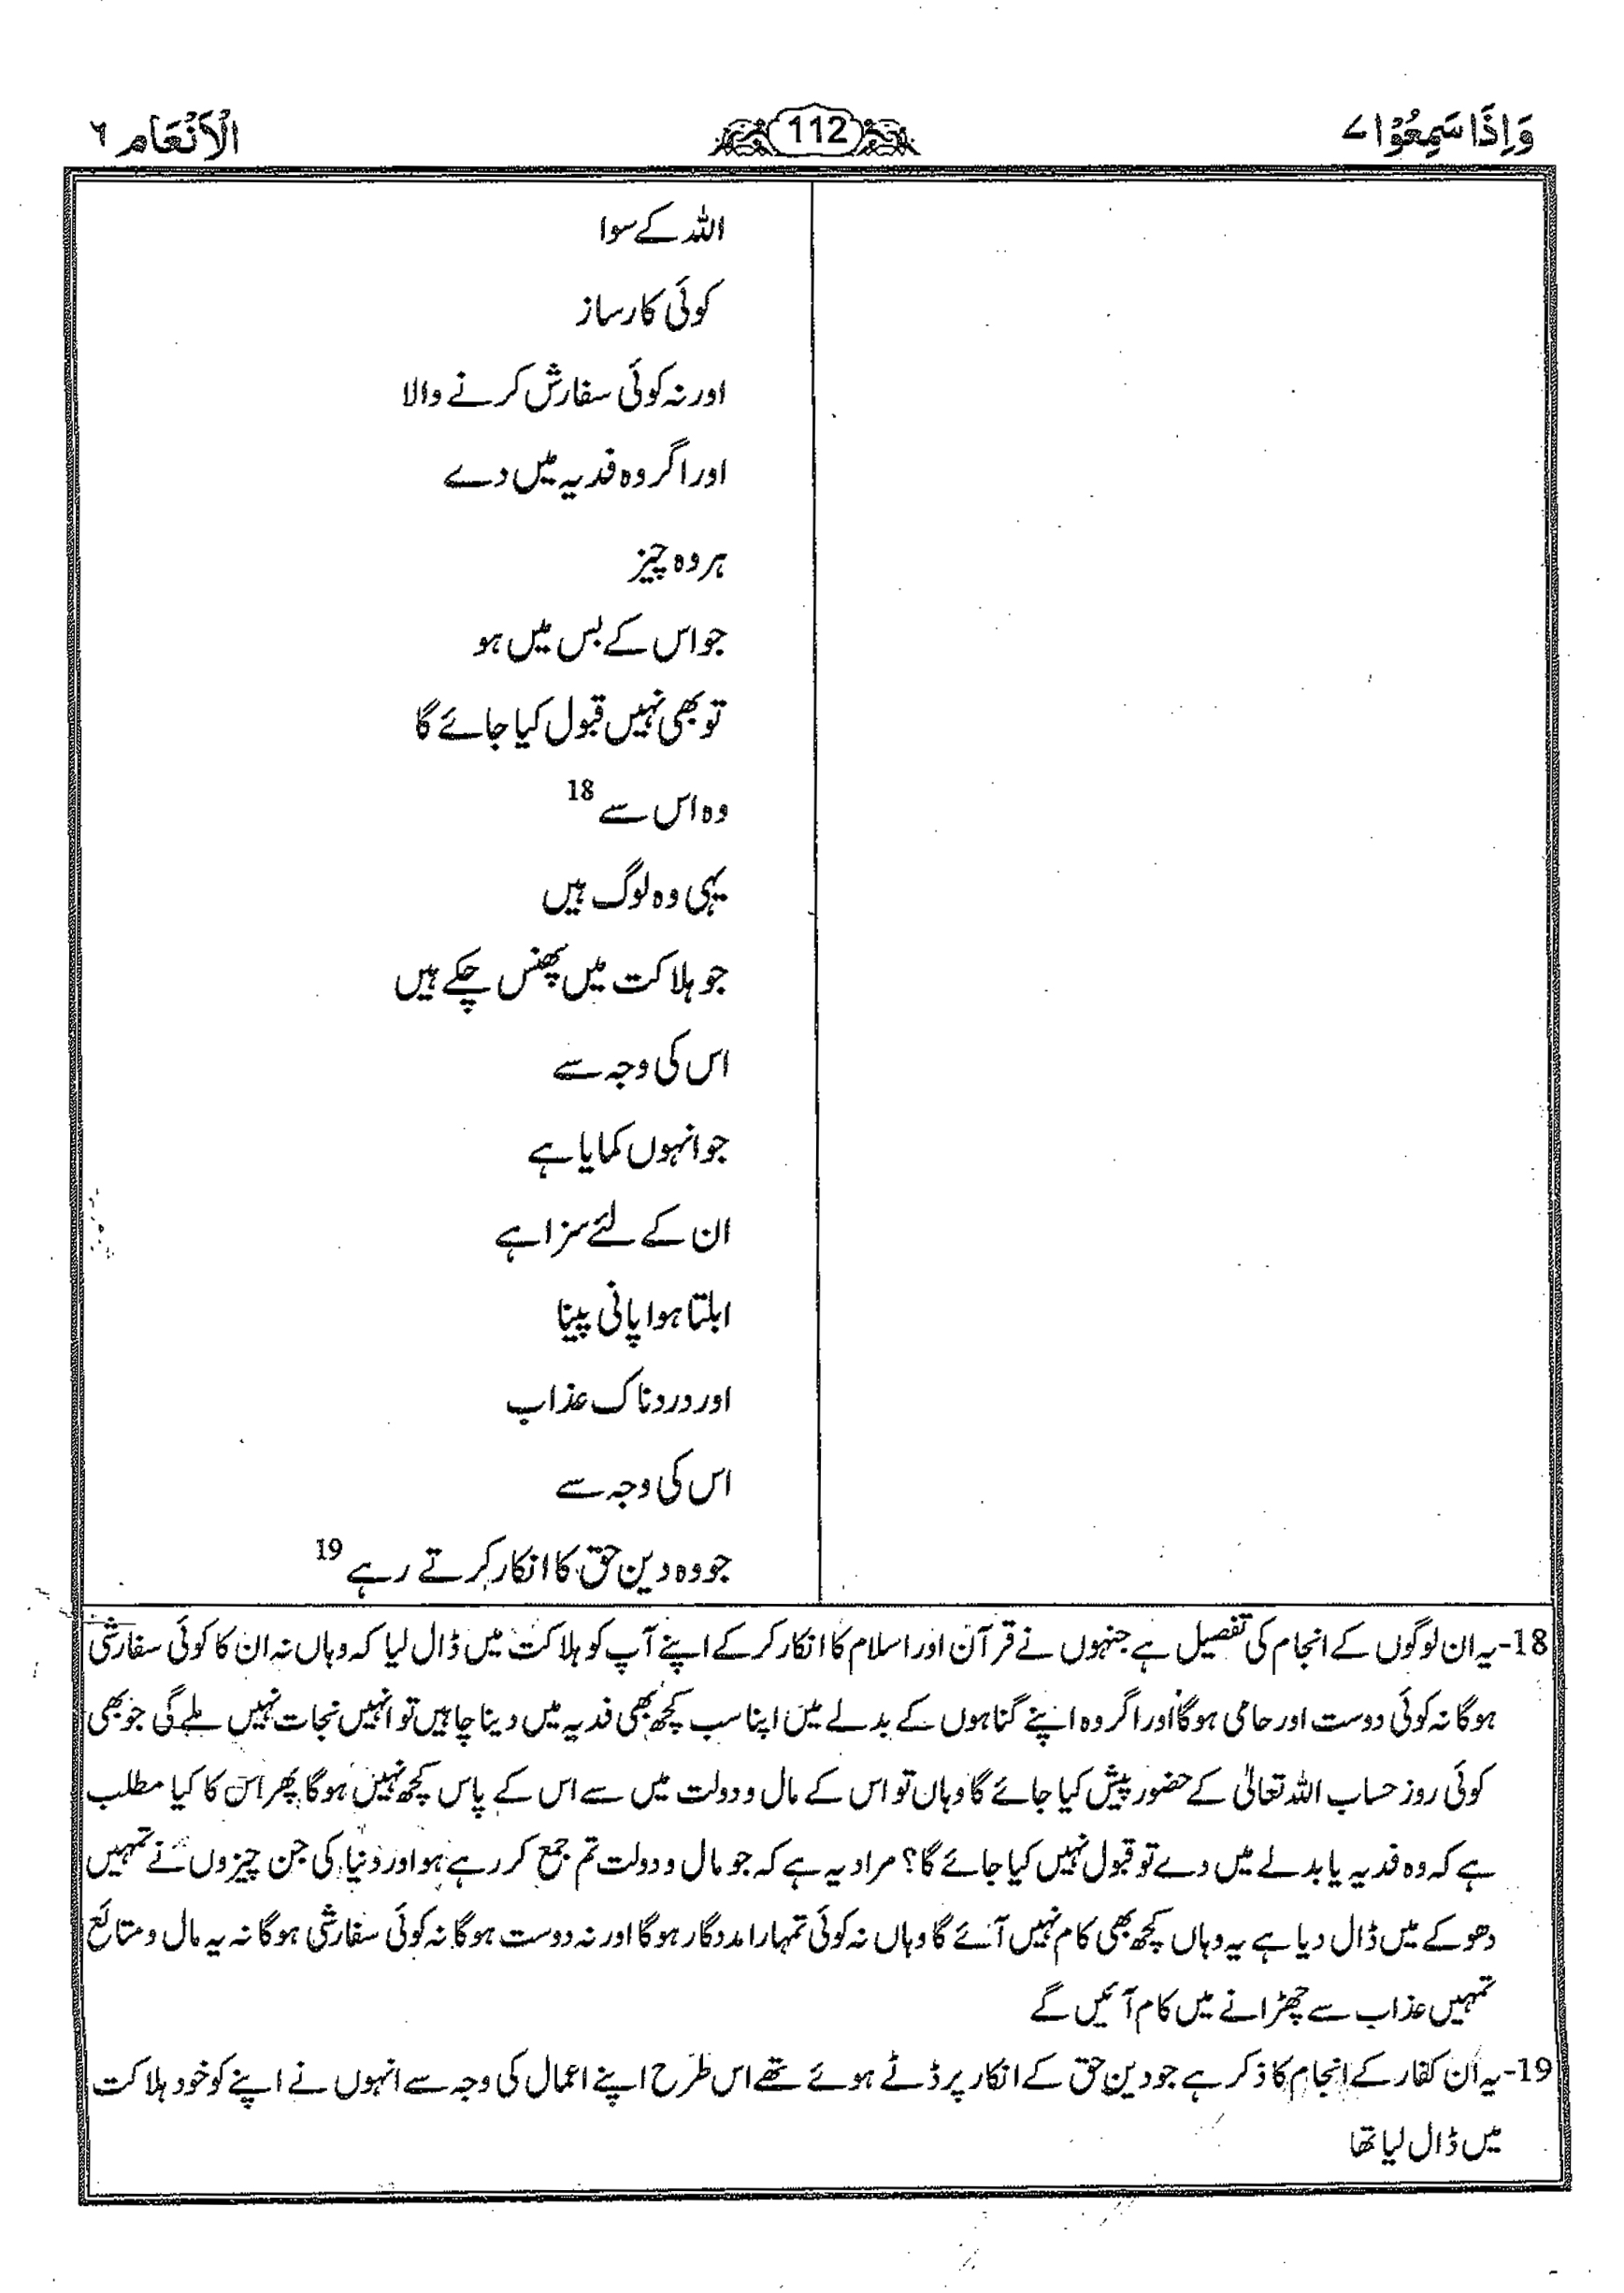 وَاِذَا سَمِعُوْا ۷
112
الْاَنْعَام ٦
اللہ کے سوا
کوئی کارساز
اور نہ کوئی سفارش کرنے والا
اور اگر وہ فدیہ میں دے
ہر وہ چیز
جو اس کے بس میں ہو
تو بھی نہیں قبول کیا جائے گا
وہ اس سے 18
یہی وہ لوگ ہیں
جو ہلاکت میں پھنس چکے ہیں
اس کی وجہ سے
جو انہوں کمایا ہے
ان کے لئے سزا ہے
ابلتا ہوا پانی پینا
اور دردناک عذاب
اس کی وجہ سے
جو وہ دین حق کا انکار کرتے رہے 19
18-یہ ان لوگوں کے انجام کی تفصیل ہے جنہوں نے قرآن اور اسلام کا انکار کر کے اپنے آپ کو ہلاکت میں ڈال لیا کہ وہاں نہ ان کا کوئی سفارشی
ہوگا نہ کوئی دوست اور حامی ہوگا اور اگر وہ اپنے گناہوں کے بدلے میں اپنا سب کچھ بھی فدیہ میں دینا چاہیں تو انہیں نجات نہیں ملے گی جو بھی
کوئی روز حساب اللہ تعالیٰ کے حضور پیش کیا جائے گا وہاں تو اس کے مال و دولت میں سے اس کے پاس کچھ نہیں ہوگا پھر اس کا کیا مطلب
ہے کہ وہ فدیہ یا بدلے میں دے تو قبول نہیں کیا جائے گا؟ مراد یہ ہے کہ جو مال و دولت تم جمع کر رہے ہو اور دنیا کی جن چیزوں نے تمہیں
دھوکے میں ڈال دیا ہے یہ وہاں کچھ بھی کام نہیں آئے گا وہاں نہ کوئی تمہارا مددگار ہوگا اور نہ دوست ہوگا نہ کوئی سفارشی ہوگا نہ یہ مال و متائع
تمہیں عذاب سے چھڑانے میں کام آئیں گے
19-یہ ان کفار کے انجام کا ذکر ہے جو دین حق کے انکار پر ڈٹے ہوئے تھے اس طرح اپنے اعمال کی وجہ سے انہوں نے اپنے کو خود ہلاکت
میں ڈال لیا تھا